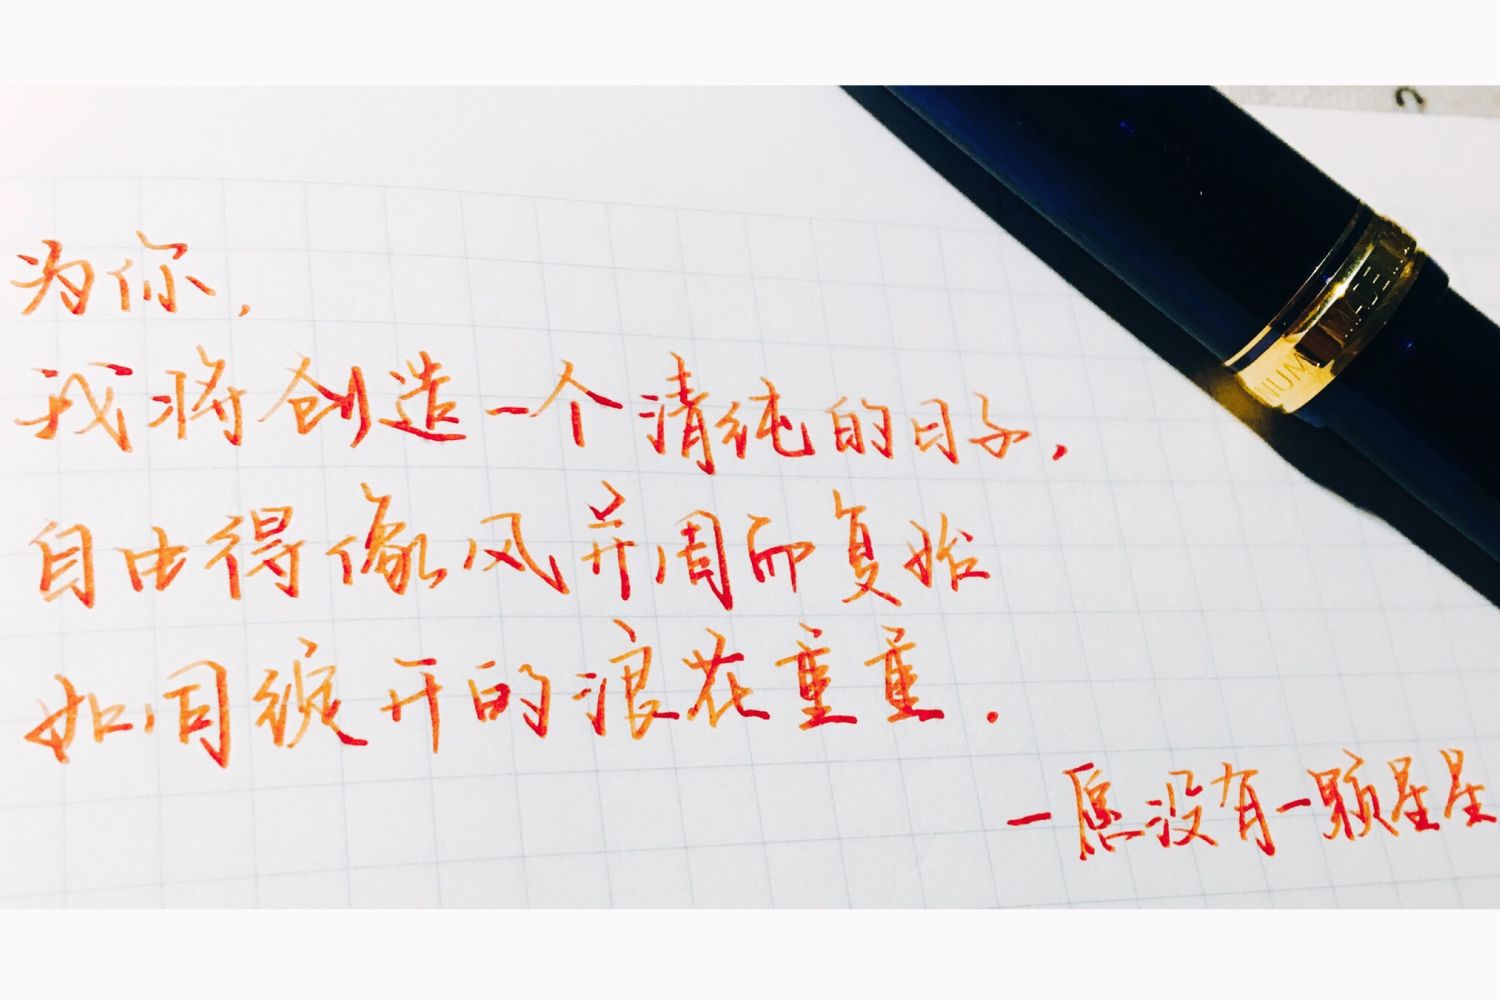 为你，
我将创造一个清纯的日子，
自由得像风并周而复始
如同绽开的浪花重重．
一愿没有一颗星星
NIUM MADE